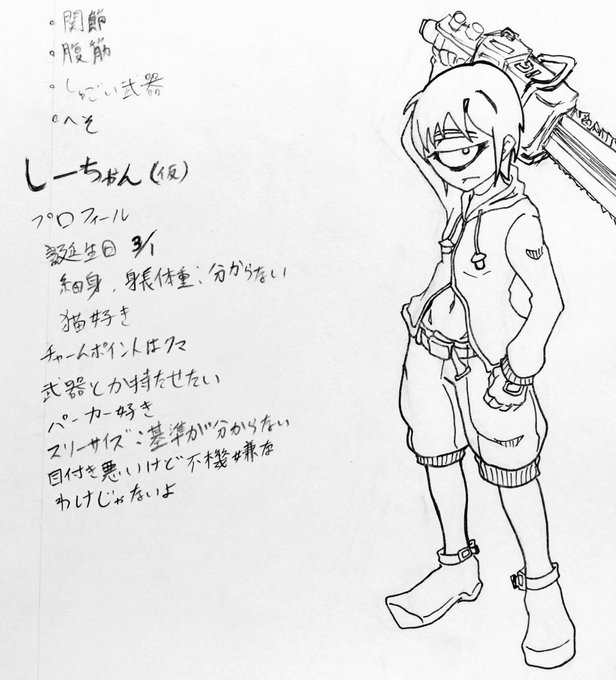 ・関節
・腹筋
・しゅごい武器
・へそ
しーちゃん(仮)
プロフィール
誕生日 3/1
細身、身長体重:分からない
猫好き
チャームポイントはクマ
武器とか持たせたい
パーカー好き
スリーサイズ:基準が分からない
目付き悪いけど不機嫌な
わけじゃないよ